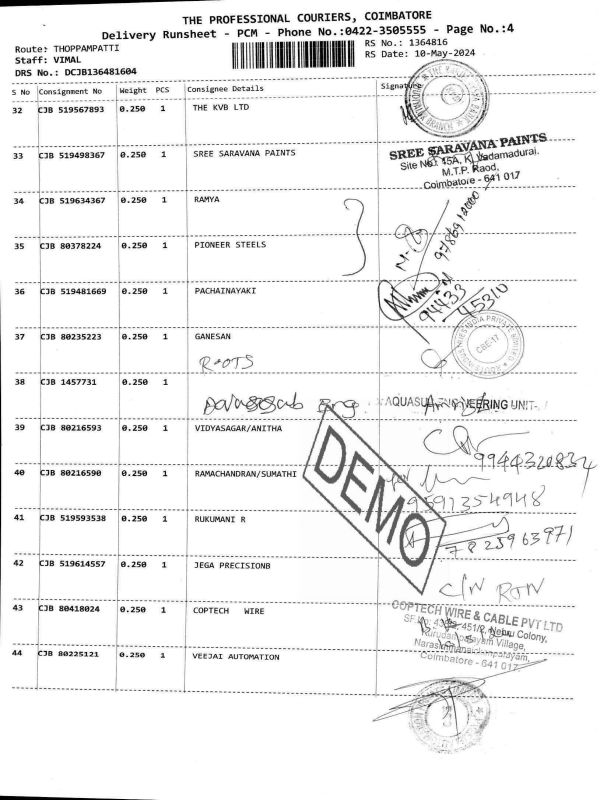 THE PROFESSIONAL COURIERS, COIMBATORE
Delivery Runsheet - PCM - Phone No.:0422-3505555 - Page No.:4
Route: THOPPAMPATTI
RS No.: 1364816
Staff: VIMAL
RS Date: 10-May-2024
DRS No.: DCJB136481604
S No Consignment No Weight PCS Consignee Details Signature
32 CJB 519567893 0.250 1 THE KVB LTD
33 CJB 519498367 0.250 1 SREE SARAVANA PAINTS
SREE SARAVANA PAINTS
Site No. 45A, K. Vadamadurai,
M.T.P. Raod,
Coimbatore - 641 017
34 CJB 519634367 0.250 1 RAMYA
9786912000
35 CJB 80378224 0.250 1 PIONEER STEELS
36 CJB 519481669 0.250 1 PACHAINAYAKI
94433
45310
37 CJB 80235223 0.250 1 GANESAN
ROOTS
CBE-17
38 CJB 1457731 0.250 1
AQUASUB ENGINEERING UNIT-
39 CJB 80216593 0.250 1 VIDYASAGAR/ANITHA
9944320834
40 CJB 80216590 0.250 1 RAMACHANDRAN/SUMATHI
9591354948
41 CJB 519593538 0.250 1 RUKUMANI R
7825963971
DEMO
42 CJB 519614557 0.250 1 JEGA PRECISIONB
C/N RTN
43 CJB 80418024 0.250 1 COPTECH WIRE
COPTECH WIRE & CABLE PVT LTD
451/2, Nehru Colony,
Village,
Coimbatore - 641 017.
44 CJB 80225121 0.250 1 VEEJAI AUTOMATION